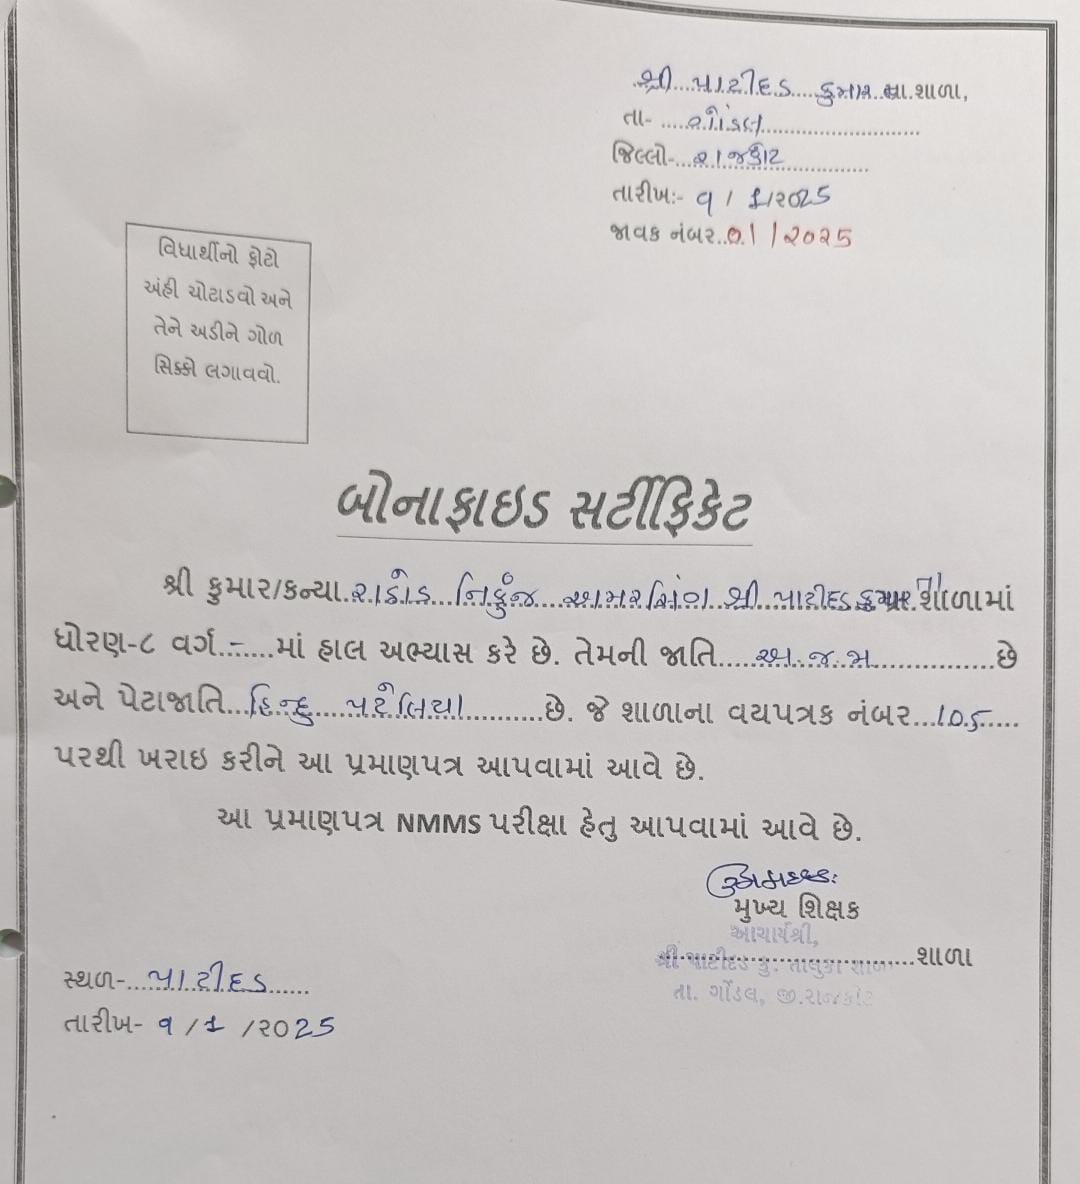 શ્રી પાટીદડ કુમાર તા.શાળા,
તા- ગોંડલ
જિલ્લો- રાજકોટ
તારીખ:- ૧ / 1/૨૦25
જાવક નંબર..01/2025
વિદ્યાર્થીનો ફોટો
અંહી ચોટાડવો અને
તેને અડીને ગોળ
સિક્કો લગાવવો.
બોનાફાઇડ સર્ટીફિકેટ
શ્રી કુમાર/કન્યા રાઠોડ નિકુંજ અમરસિંગ શ્રી પાટીદડ કુમાર શાળામાં
ધોરણ-૮ વર્ગ - માં હાલ અભ્યાસ કરે છે. તેમની જાતિ અ.જ.જા છે
અને પેટાજાતિ હિન્દુ પટેલિયા છે. જે શાળાના વયપત્રક નંબર 105
પરથી ખરાઇ કરીને આ પ્રમાણપત્ર આપવામાં આવે છે.
આ પ્રમાણપત્ર NMMS પરીક્ષા હેતુ આપવામાં આવે છે.
મુખ્ય શિક્ષક
આચાર્યશ્રી,
શ્રી પાટીદડ કુ. તાલુકા શાળા શાળા
તા. ગોંડલ, જી.રાજકોટ
સ્થળ- પાટીદડ
તારીખ- ૧ /1 /૨૦25